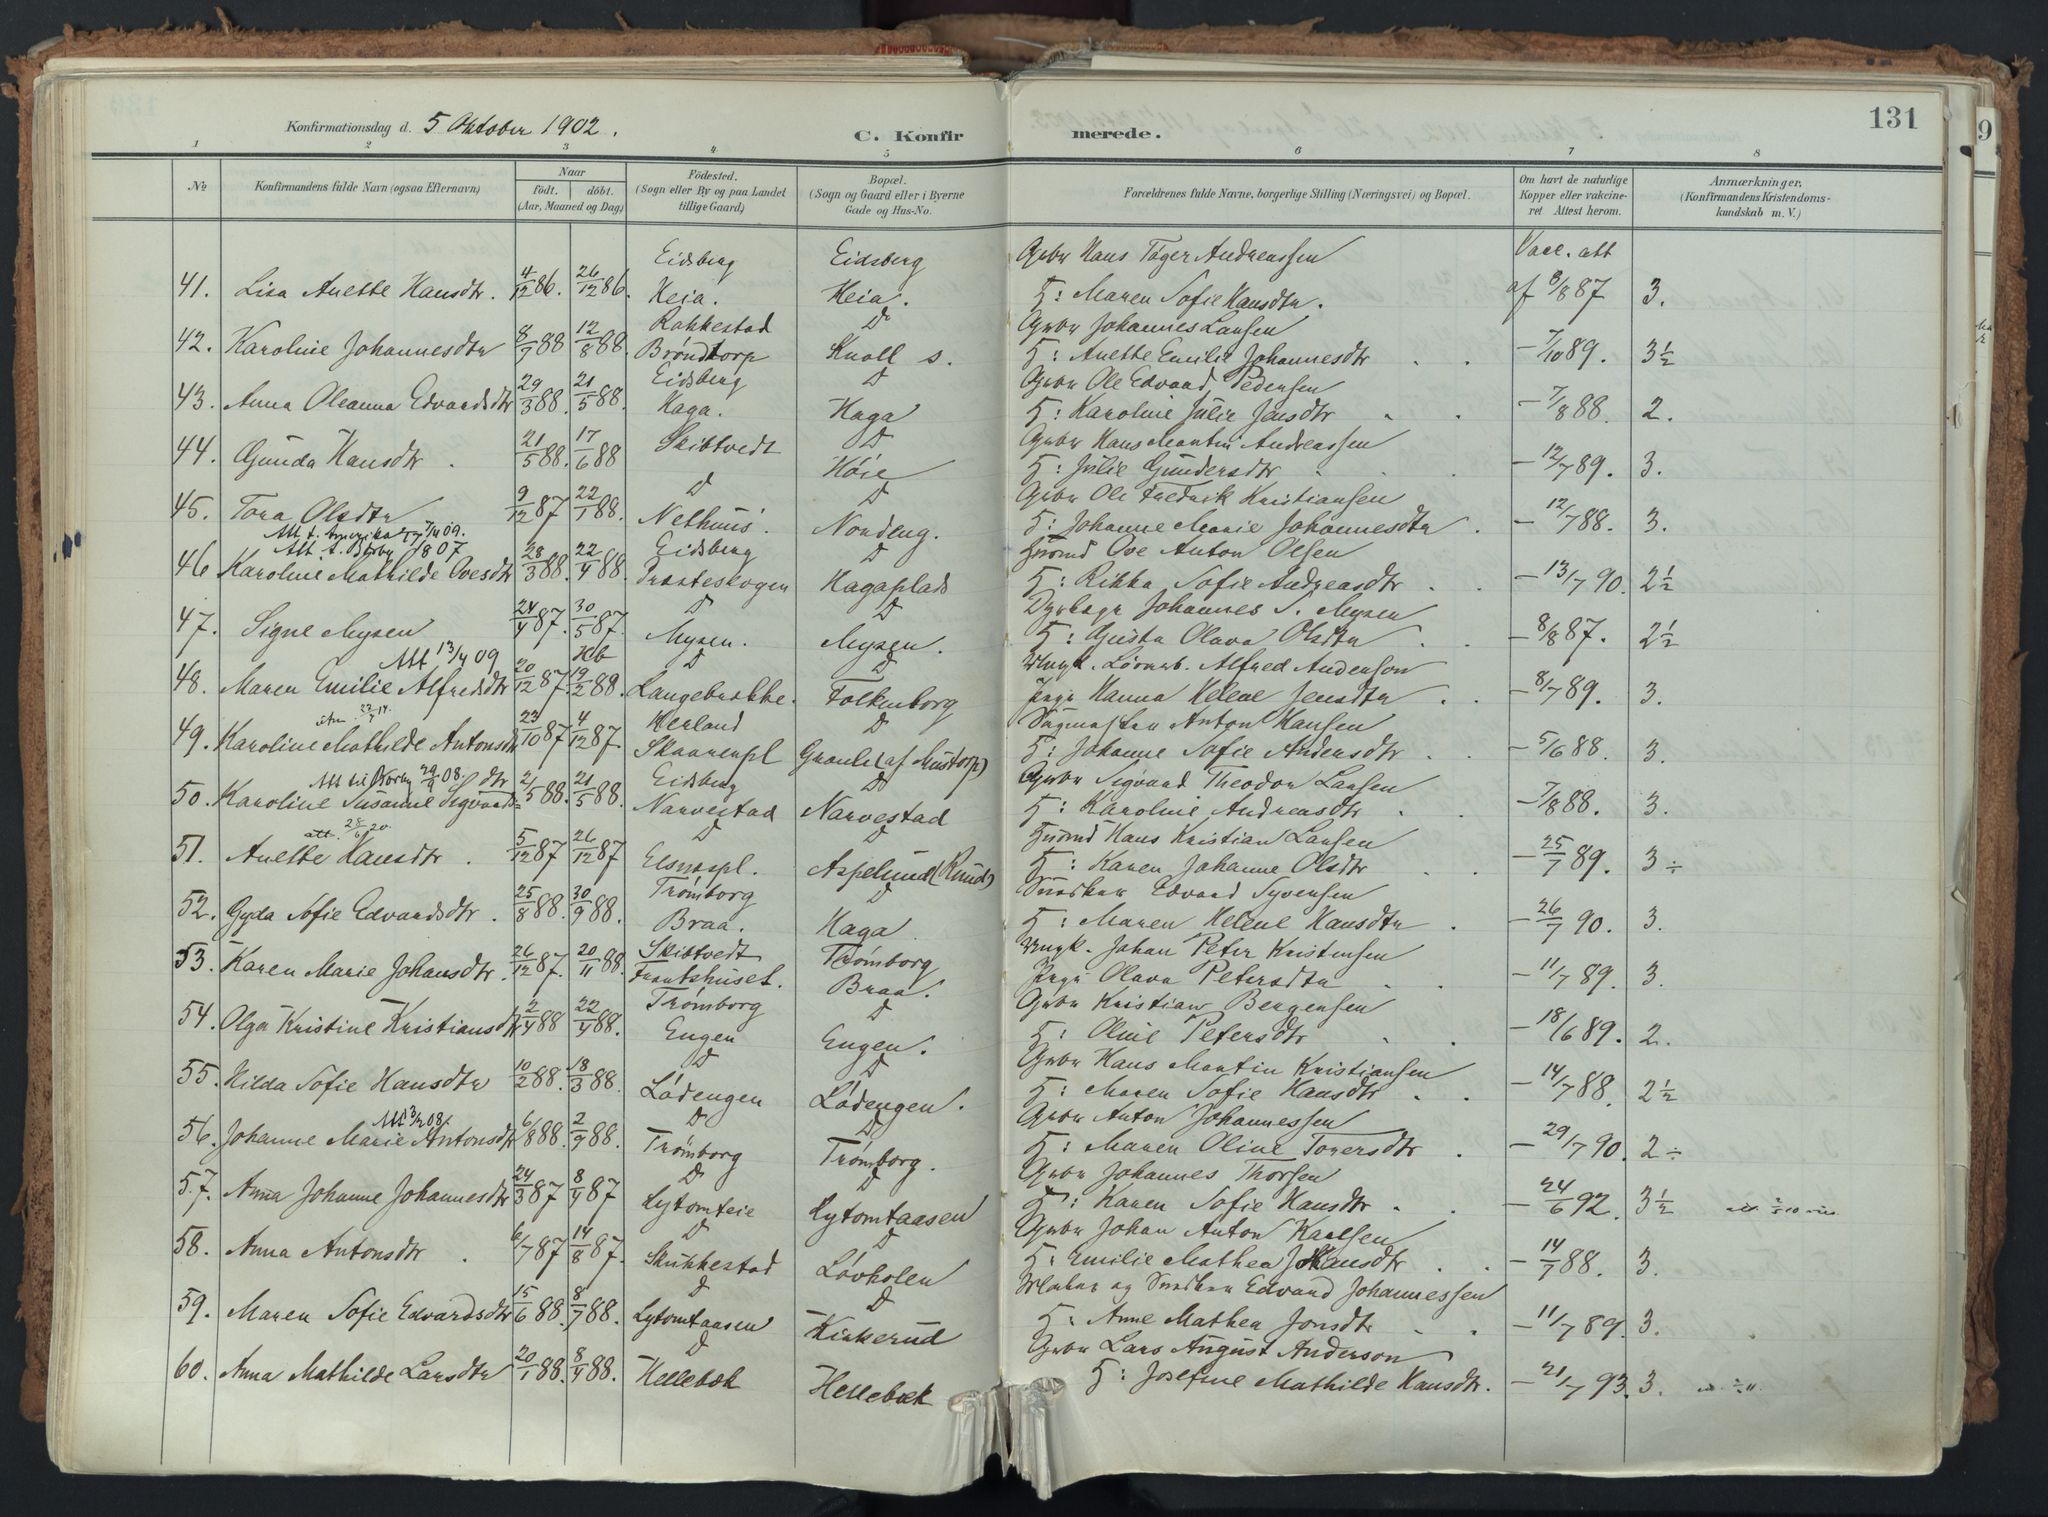 131
Konfirmationsdag d. 5 Oktober 1902.
C. Konfirmerede.
1 2 3 4 5 6 7 8
No
Konfirmandens fulde Navn (ogsaa Efternavn)
Naar
födt. döbt.
(Aar, Maaned og Dag)
Födested.
(Sogn eller By og paa Landet tillige Gaard)
Bopæl.
(Sogn og Gaard eller i Byerne Gade og Hus-No.
Forældrenes fulde Navne, borgerlige Stilling (Næringsvei) og Bopæl.
Om havt de naturlige Kopper eller vakcineret Attest herom.
Anmærkninger.
(Konfirmandens Kristendomskundskab m. V.)
Eidsberg Eidsberg Grbr Hans Tøger Andreassen Vacc. att
41. Lisa Anette Hansdtr. 4/12 86. 26/12 86. Heia. Heia. H: Maren Sofie Hansdtr. af 8/8 87 3.
Rakkestad D Grbr Johannes Larsen
42. Karoline Johannesdtr 8/7 88 12/8 88. Bröndtorp Knoll s. H: Anette Emilie Johannesdtr – 7/10 89. 3½
Eidsberg D Grbr Ole Edvard Pedersen
43. Anna Oleanna Edvardsdtr 29/3 88. 21/5 88. Haga. Haga H: Karoline Julie Jensdtr – 7/8 88. 2.
Skibtvedt D Grbr Hans Martin Andreassen
44. Gunda Hansdtr. 21/5 88. 17/6 88 Höie H: Julie Gundersdtr – 12/7 89. 3.
D D Grbr Ole Fredrik Kristiansen
45. Tora Olsdtr 9/12 87 22/1 88. Nethuus. Nordeng. H: Johanne Marie Johannesdtr. – 12/7 88. 3.
Att t. Amerika 7/4 09.
Att. t. Börby 807
Eidsberg D Husmd Ove Anton Olsen
46 Karoline Mathilde Ovesdtr 28/3 88. 22/4 88. Prasteskogen Hagaplads H: Rikka Sofie Andreasdtr – 13/7 90. 2½
D D Dyrlæge Johannes S. Mysen
47. Signe Mysen 24/4 87. 30/5 87. Mysen. Mysen. H: Gusta Olava Olsdtr – 8/8 87. 2½
Att 13/4 09 Hb D D Ungk. Alfred Anderson
48. Maren Emilie Alfredsdtr 20/12 87. 19/2 88. Langebrekke. Folkenborg Pige Hanna Helene Jensdtr – 8/7 89. 3.
Herland D Sagmester Anton Hansen
49. Karoline Mathilde Antonsdtr 23/10 87 4/12 87 Skaarenpl Granli (af Mustorp) H: Johanne Sofie Andersdtr – 5/6 88. 3.
Att til Börby 29/9 08.
Eidsberg D Grbr Sigvard Theodor Larsen
50. Karoline Susanne Sigvardsdtr 2/5 88. 21/5 88. Narvestad Narvestad H: Karoline Andreasdtr – 7/8 88. 3.
att. 28/6 20.
D D Husmd Hans Kristian Larsen
51. Anette Hansdtr. 5/12 87 26/12 87 Elsnespl. Aspelund (Rund) H: Karen Johanne Olsdtr – 25/7 89. 3 ÷
Trömborg D Snedker Edvard Syversen
52. Gyda Sofie Edvardsdtr. 25/8 88. 30/9 88. Braa. Haga H: Maren Helene Hansdtr – 26/7 90. 3.
Skibtvedt Trömborg Ungk. Johan Peter Kristensen
53. Karen Marie Johansdtr. 26/12 87. 20/11 88. Frantshuset. Braa. Pige Olava Petersdtr – 11/7 89. 3.
Trömborg D Grbr Kristian Bergersen
54. Olga Kristine Kristiansdtr 2/4 88 22/4 88. Engen Engen. H: Oline Petersdtr – 18/6 89. 2.
D D Grbr Hans Martin Kristiansen
55. Hilda Sofie Hansdtr 10/2 88. 18/3 88. Lödengen Lödengen. H: Maren Sofie Hansdtr – 14/7 88. 2½
Att 3/2 08.
D D Grbr Anton Johannessen
56. Johanne Marie Antonsdtr 6/8 88. 2/9 88. Trömborg Trömborg. H: Maren Oline Toversdtr. – 29/7 90. 2 ÷
D D Grbr Johannes Thorsen
57. Anna Johanne Johannesdtr 24/3 87 8/4 87 Lytomteie Lytomtaasen H: Karen Sofie Hansdtr – 24/6 92. 3½
D D Grbr Johan Anton Karlsen
58. Anna Antonsdtr. 6/7 87 14/8 87. Skukkestad Lövholen H: Emilie Mathea Johansdtr – 14/7 88. 3.
D D Maler og Snedker Edvard Johannessen
59. Maren Sofie Edvardsdtr 15/6 88. 8/7 88. Lytomtaasen Kirkerud H: Anne Mathea Jonsdtr – 11/7 89. 3.
D Grbr Lars August Anderson
60. Anna Mathilde Larsdtr 20/1 88. 8/4 88. Hellebæk Hellebæk H: Josefine Mathilde Hansdtr. – 21/7 93. 3.